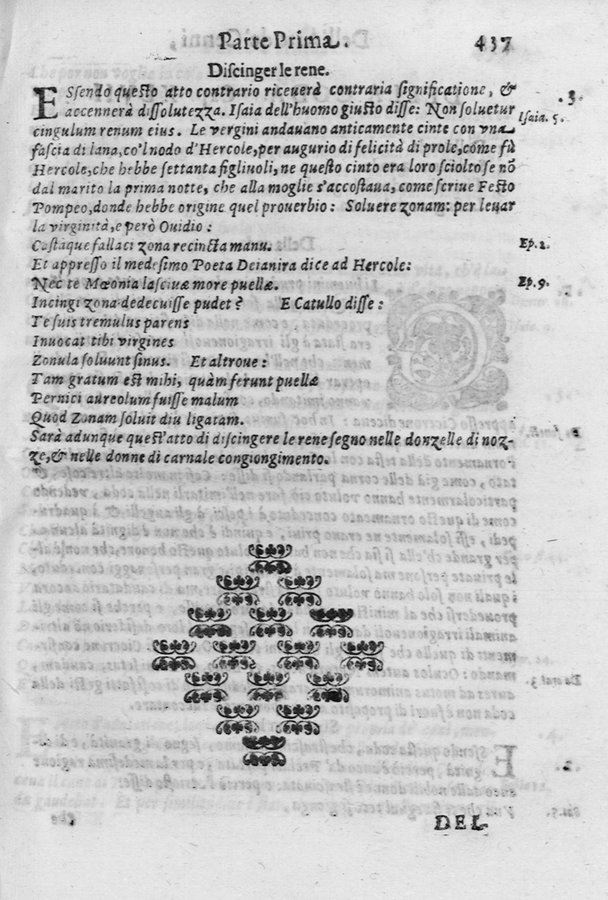 Parte Prima. 437
Discinger le rene.
ESsendo questo atto contrario riceverà contraria significatione, &
accennerà dissolutezza. Isaia dell'huomo giusto disse: Non soluetur
Isaia. 5.
cingulum renum eius. Le vergini andauano anticamente cinte con vna
fascia di lana, co'l nodo d'Hercole, per augurio di felicità di prole, come fù
Hercole, che hebbe settanta figliuoli, ne questo cinto era loro sciolto se nō
dal marito la prima notte, che alla moglie s'accostaua, come scriue Festo
Pompeo, donde hebbe origine quel prouerbio: Soluere zonam: per leuar
la virginità, e però Ouidio:
Castaque fallaci zona recincta manu. Ep. 2.
Et appresso il medesimo Poeta Deianira dice ad Hercole:
Nec te Mœonia lasciuæ more puellæ. Ep. 9.
Incingi zona dedecuisse pudet? E Catullo disse:
Te suis tremulus parens
Inuocat tibi virgines
Zonula soluunt sinus. Et altroue:
Tam gratum est mihi, quàm ferunt puellæ
Pernici aureolum fuisse malum
Quod Zonam soluit diu ligatam.
Sarà adunque quest'atto di discingere le rene segno nelle donzelle di noz-
ze, & nelle donne di carnale congiongimento.
DEL